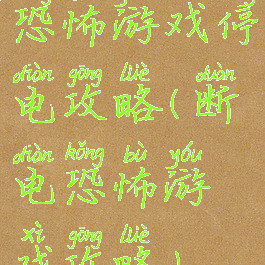 恐怖游戏停
diàn gōng lüè duàn
电攻略(断
diàn kǒng bù yóu
电恐怖游
xì gōng lüè
戏攻略)